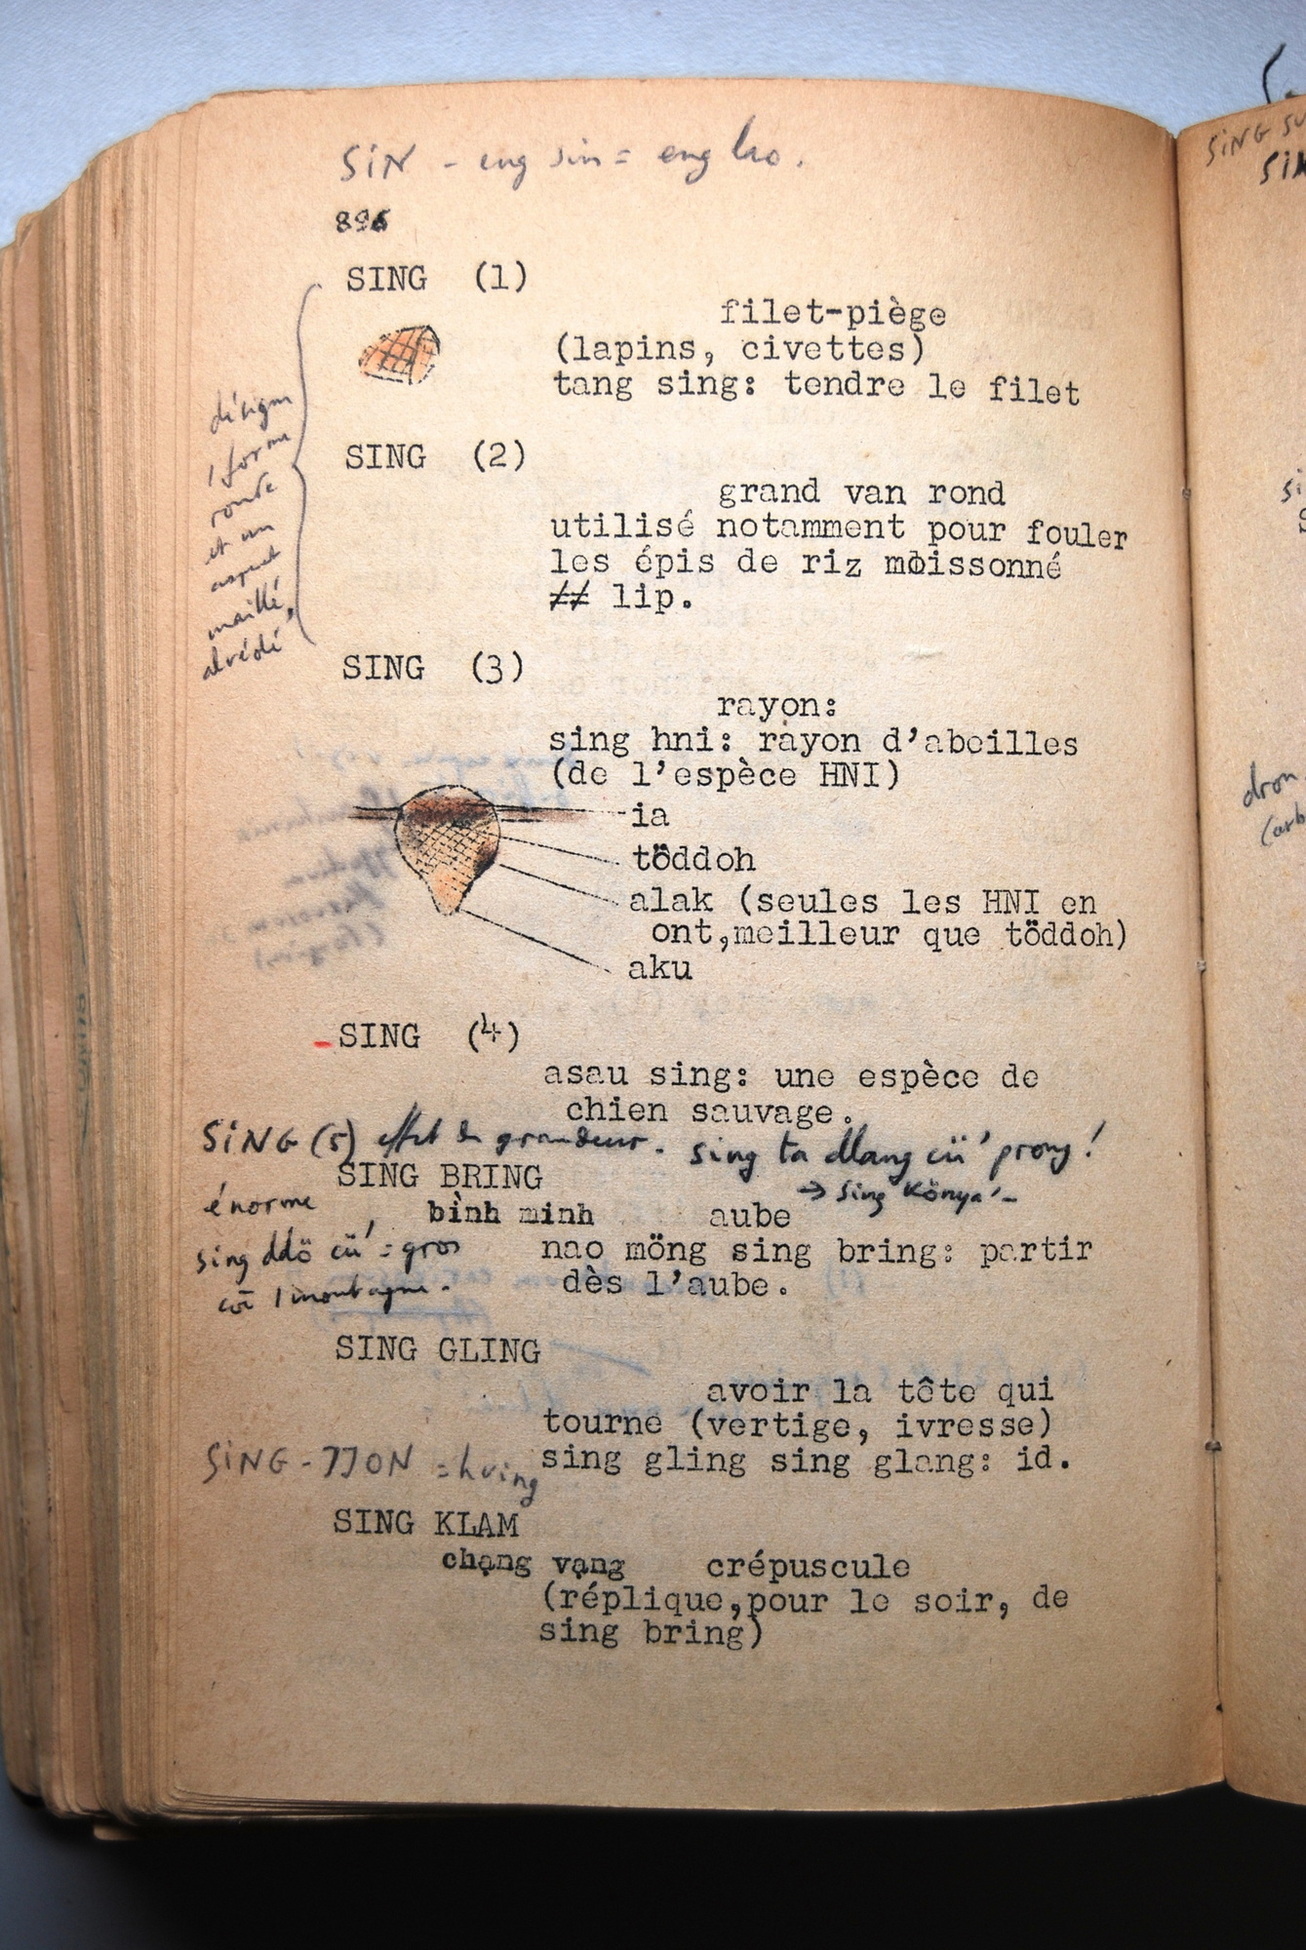 SiN - eng sin = eng lao.
896
SING (1)
filet-piège
(lapins, civettes)
tang sing: tendre le filet
désigne
1 forme
ronde
et un
aspect
maillé,
alvéolé
SING (2)
grand van rond
utilisé notamment pour fouler
les épis de riz moissonné
≠≠ lip.
SING (3)
rayon:
sing hni: rayon d'abeilles
(de l'espèce HNI)
ia
töddoh
alak (seules les HNI en
ont,meilleur que töddoh)
aku
SING (4)
asau sing: une espèce de
chien sauvage.
SiNG (5) effet de grandeur. sing ta dlang cü' prong!
→ sing Könya'-
SING BRING
énorme
bình minh aube
sing ddö cü' = gros
nao möng sing bring: partir
dès l'aube.
cö 1 montagne.
SING GLING
avoir la tête qui
tourne (vertige, ivresse)
sing gling sing glang: id.
SiNG-JJON = hving
SING KLAM
chạng vạng crépuscule
(réplique,pour le soir, de
sing bring)
SiNG
dron